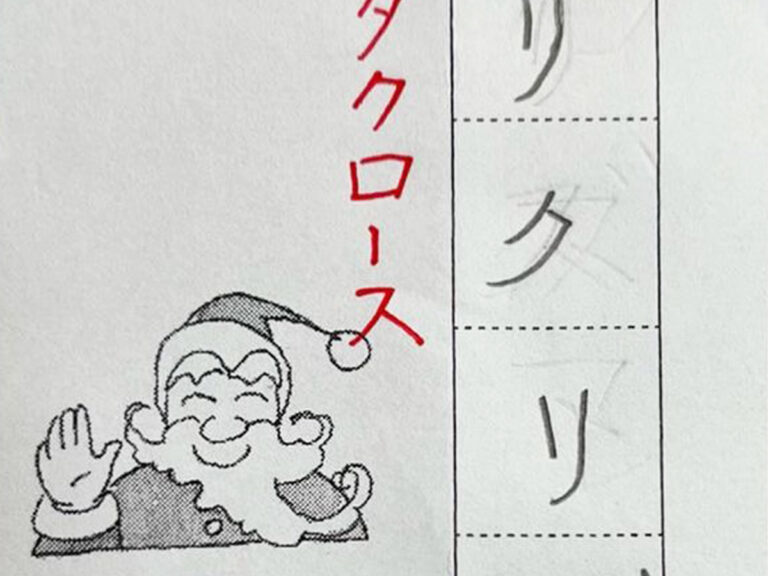 リクリ
タクロース